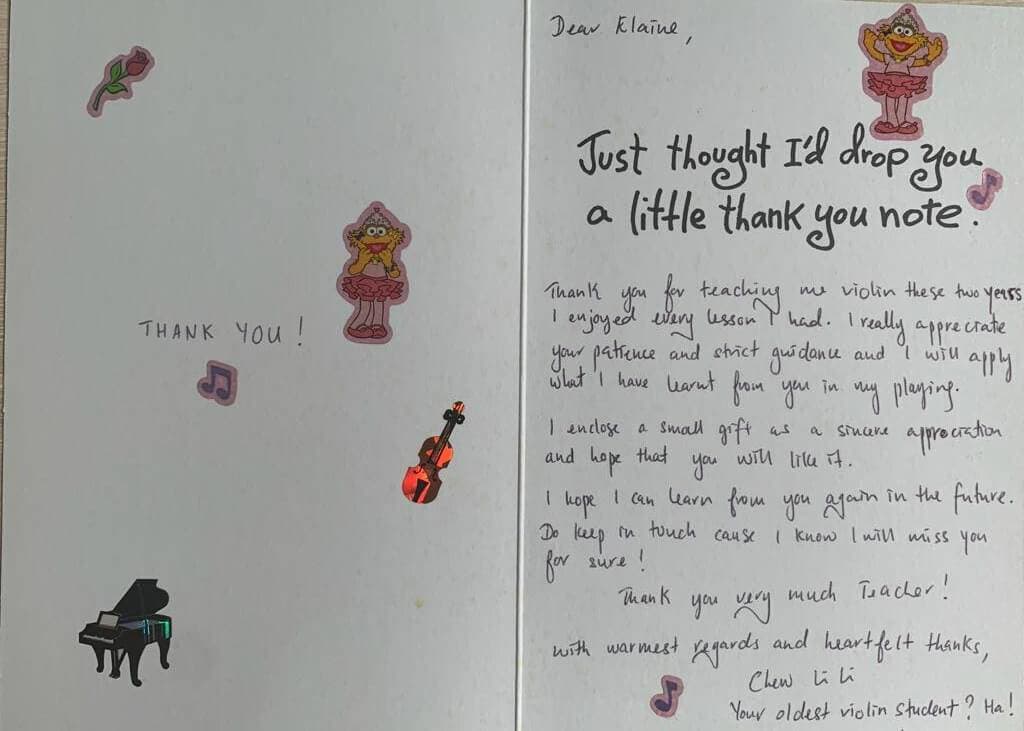 THANK YOU!
Dear Elaine,
Just thought I'd drop you
a little thank you note.
Thank you for teaching me violin these two years
I enjoyed every lesson I had. I really appreciate
your patience and strict guidance and I will apply
what I have learnt from you in my playing.
I enclose a small gift as a sincere appreciation
and hope that you will like it.
I hope I can learn from you again in the future.
Do keep in touch cause I know I will miss you
for sure!
Thank you very much Teacher!
with warmest regards and heartfelt thanks,
Chew Li Li
Your oldest violin student? Ha!